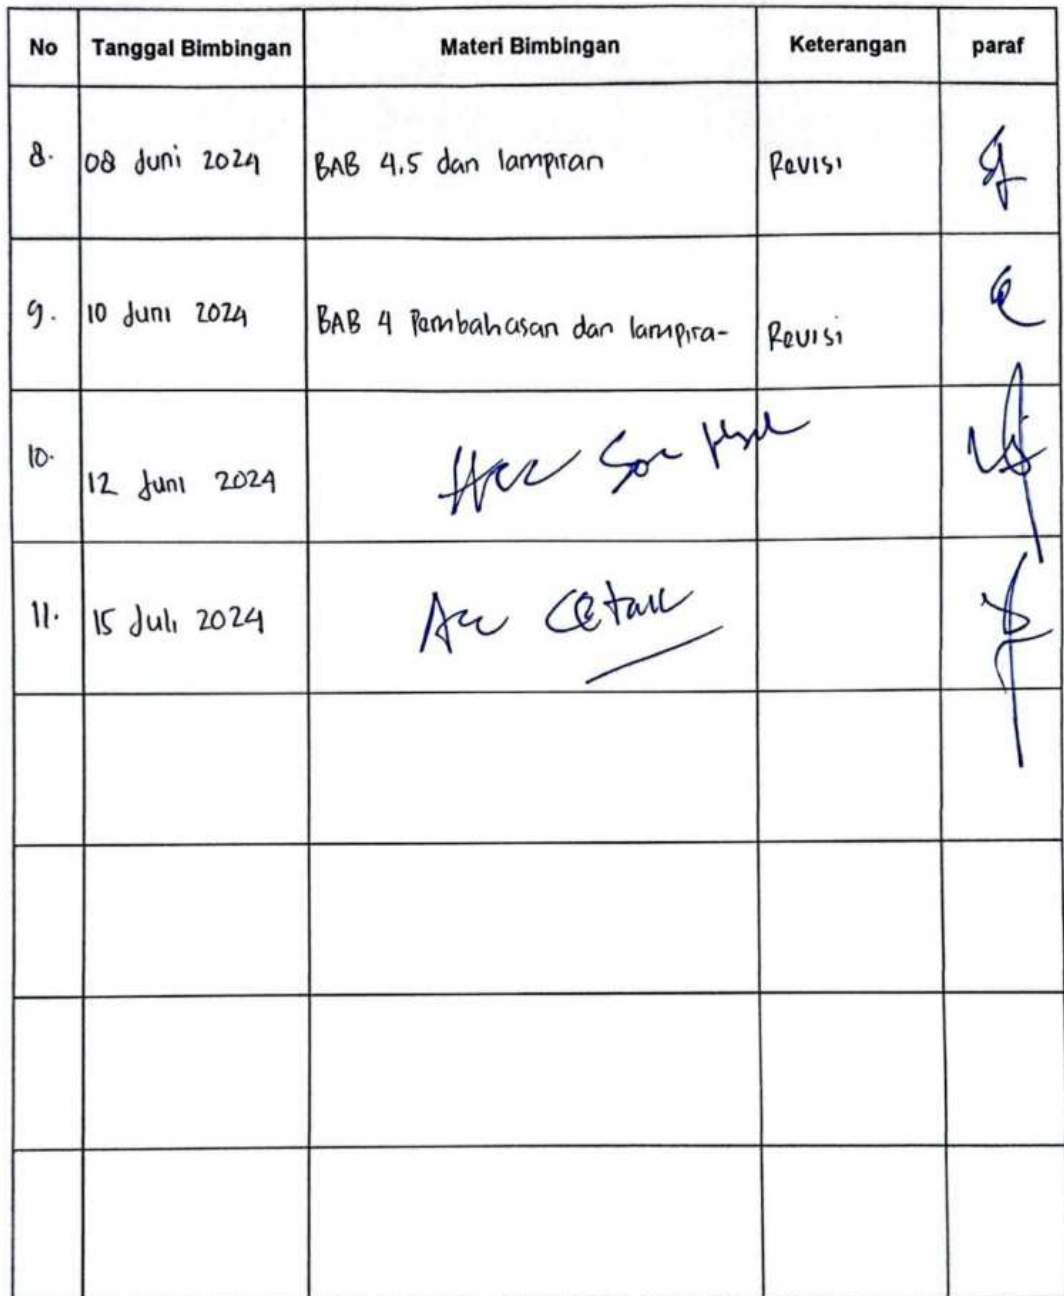 No Tanggal Bimbingan Materi Bimbingan Keterangan paraf
8. 08 Juni 2024 BAB 4.5 dan lampiran Revisi
9. 10 Juni 2024 BAB 4 Pembahasan dan lampira- Revisi
10. 12 Juni 2024 Acc
11. 15 Juli 2024 Acc Cetak